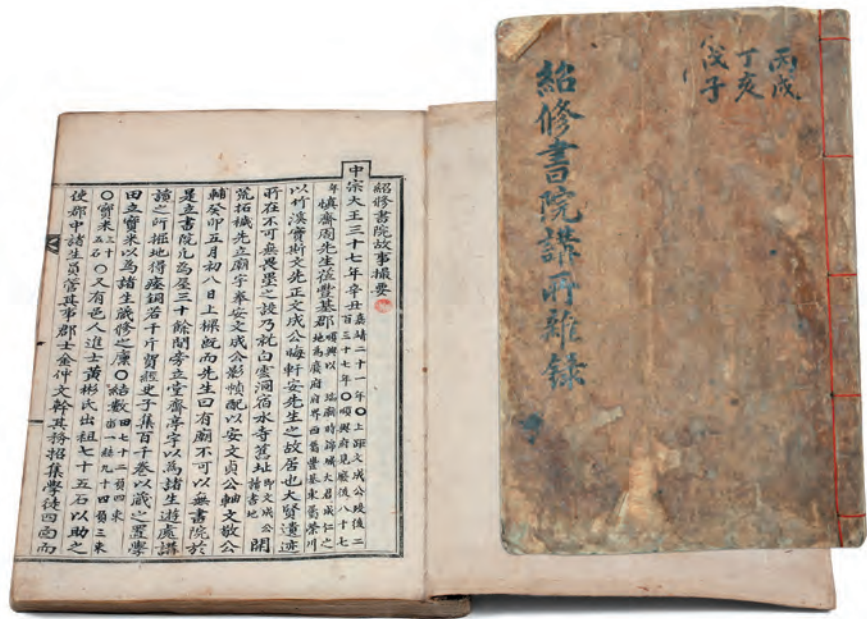 丙戌
丁亥
戊子
紹修書院講所雜錄
紹修書院故事撮要
中宗大王三十七年辛丑嘉靖二十一年○上距文成公歿後二百三十七年○順興府見廢後八十七
年愼齋周先生莅豊基郡順興以 端廟時錦城大君成仁之地爲廣府府界西爲豊基東爲榮川
以竹溪實斯文先正文成公晦軒安先生之故居也大賢遺迹
所在不可無畏壘之設乃就白雲洞宿水寺舊址卽文成公讀書地開
荒拓穢先立廟宇奉安文成公影幀配以安文貞公軸文敬公
輔癸卯五月初八日上樑旣而先生曰有廟不可以無書院於
是立書院凡爲屋三十餘間旁立堂齋亭宇以爲諸生遊處講
讀之所掘地得瘞銅若干斤貿經史子集百千卷以藏之置學
田立寶米以爲諸生藏修之廩○結數田七十二負四束畓一結九十四負三束
○寶米三十五石○又有邑人進士黃彬氏出租七十五石以助之
使郡中諸生員管其事郡士金仲文幹其務招集學徒四面而